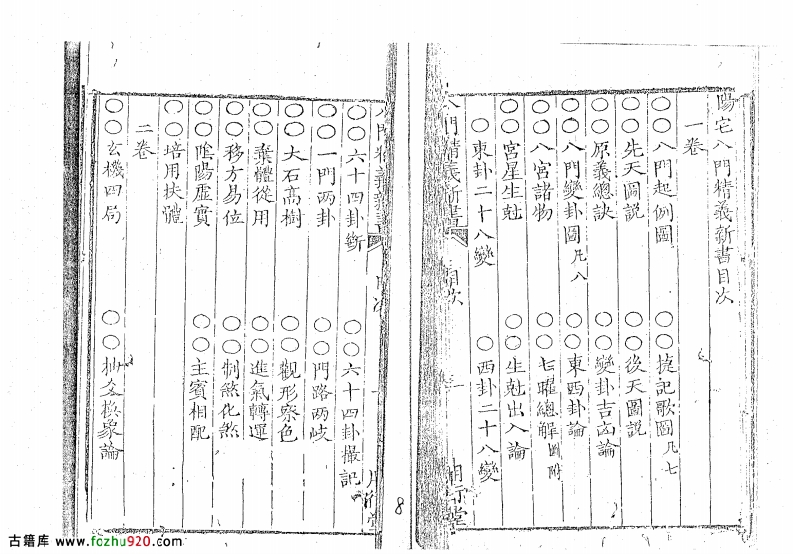 陽宅八門精義新書目次
一卷
○○八門起例圖 ○○捷記歌圖凡七
○○先天圖説 ○○後天圖説
○○原義總訣 ○○變卦吉凶論
○○八門變卦圖凡八 ○○東西卦論
○○八宮諸物 ○○七曜總解圖附
○○宮星生尅 ○○生尅出入論
○東卦二十八變 ○西卦二十八變
八門精義新書 目次
○○六十四卦斷 ○○六十四卦撮記
○○一門兩卦 ○○門路兩岐
○○大石高樹 ○○觀形察色
○○棄體從用 ○○進氣轉運
○○移方易位 ○○制煞化煞
○○陰陽虛實 ○○主賓相配
○○培用扶體
二卷
○○玄機四局 ○○抽爻換象論
8
古籍库 www.fozhu920.com